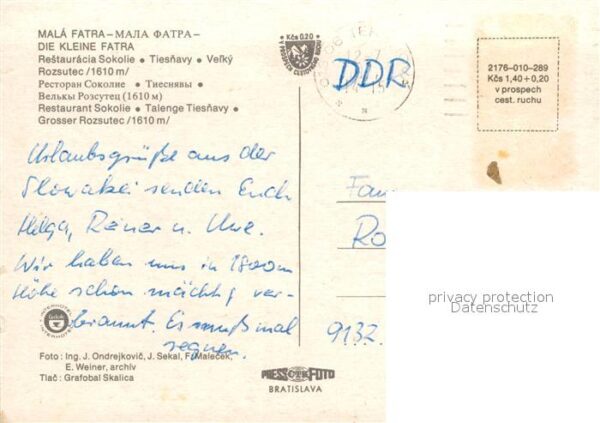 MALÁ FATRA–МАЛА ФАТРА–
DIE KLEINE FATRA
Reštaurácia Sokolie • Tiesňavy • Veľký
Rozsutec /1610 m/
Ресторан Соколие • Тиеснявы •
Велькы Розсутец (1610 м)
Restaurant Sokolie • Talenge Tiesňavy •
Grosser Rozsutec /1610 m/
Kčs 0,20
V PROSPECH CESTOVNÉHO RUCHU
DDR
2176–010–289
Kčs 1,40+0,20
v prospech
cest. ruchu
Urlaubsgrüße aus der
Slowakei senden Euch
Helga, Rainer u. Uwe.
Wir haben uns in 1800m
Höhe schon mächtig ver-
brannt. Es muß mal
regnen.
Fam
Ro
9132
privacy protection
Datenschutz
INTERHOTEL
Foto : Ing. J. Ondrejkovič, J. Sekal, F. Maleček,
E. Weiner, archív
Tlač : Grafobal Skalica
PRESSFOTO
BRATISLAVA